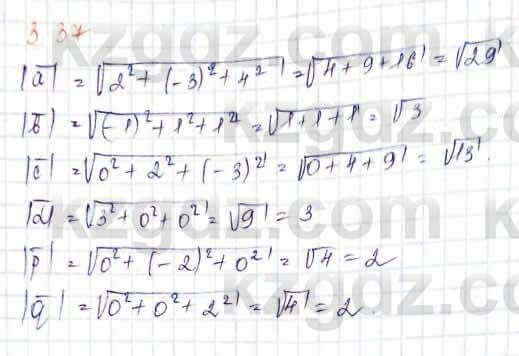 3 37
|a̅| = √(2² + (-3)² + 4²) = √(4 + 9 + 16) = √29
|b̅| = √((-1)² + 1² + 1²) = √(1 + 1 + 1) = √3
|c̅| = √(0² + 2² + (-3)²) = √(0 + 4 + 9) = √13.
|d̅| = √(3² + 0² + 0²) = √9 = 3
|p̅| = √(0² + (-2)² + 0²) = √4 = 2
|q̅| = √(0² + 0² + 2²) = √4 = 2.
kzgdz.com